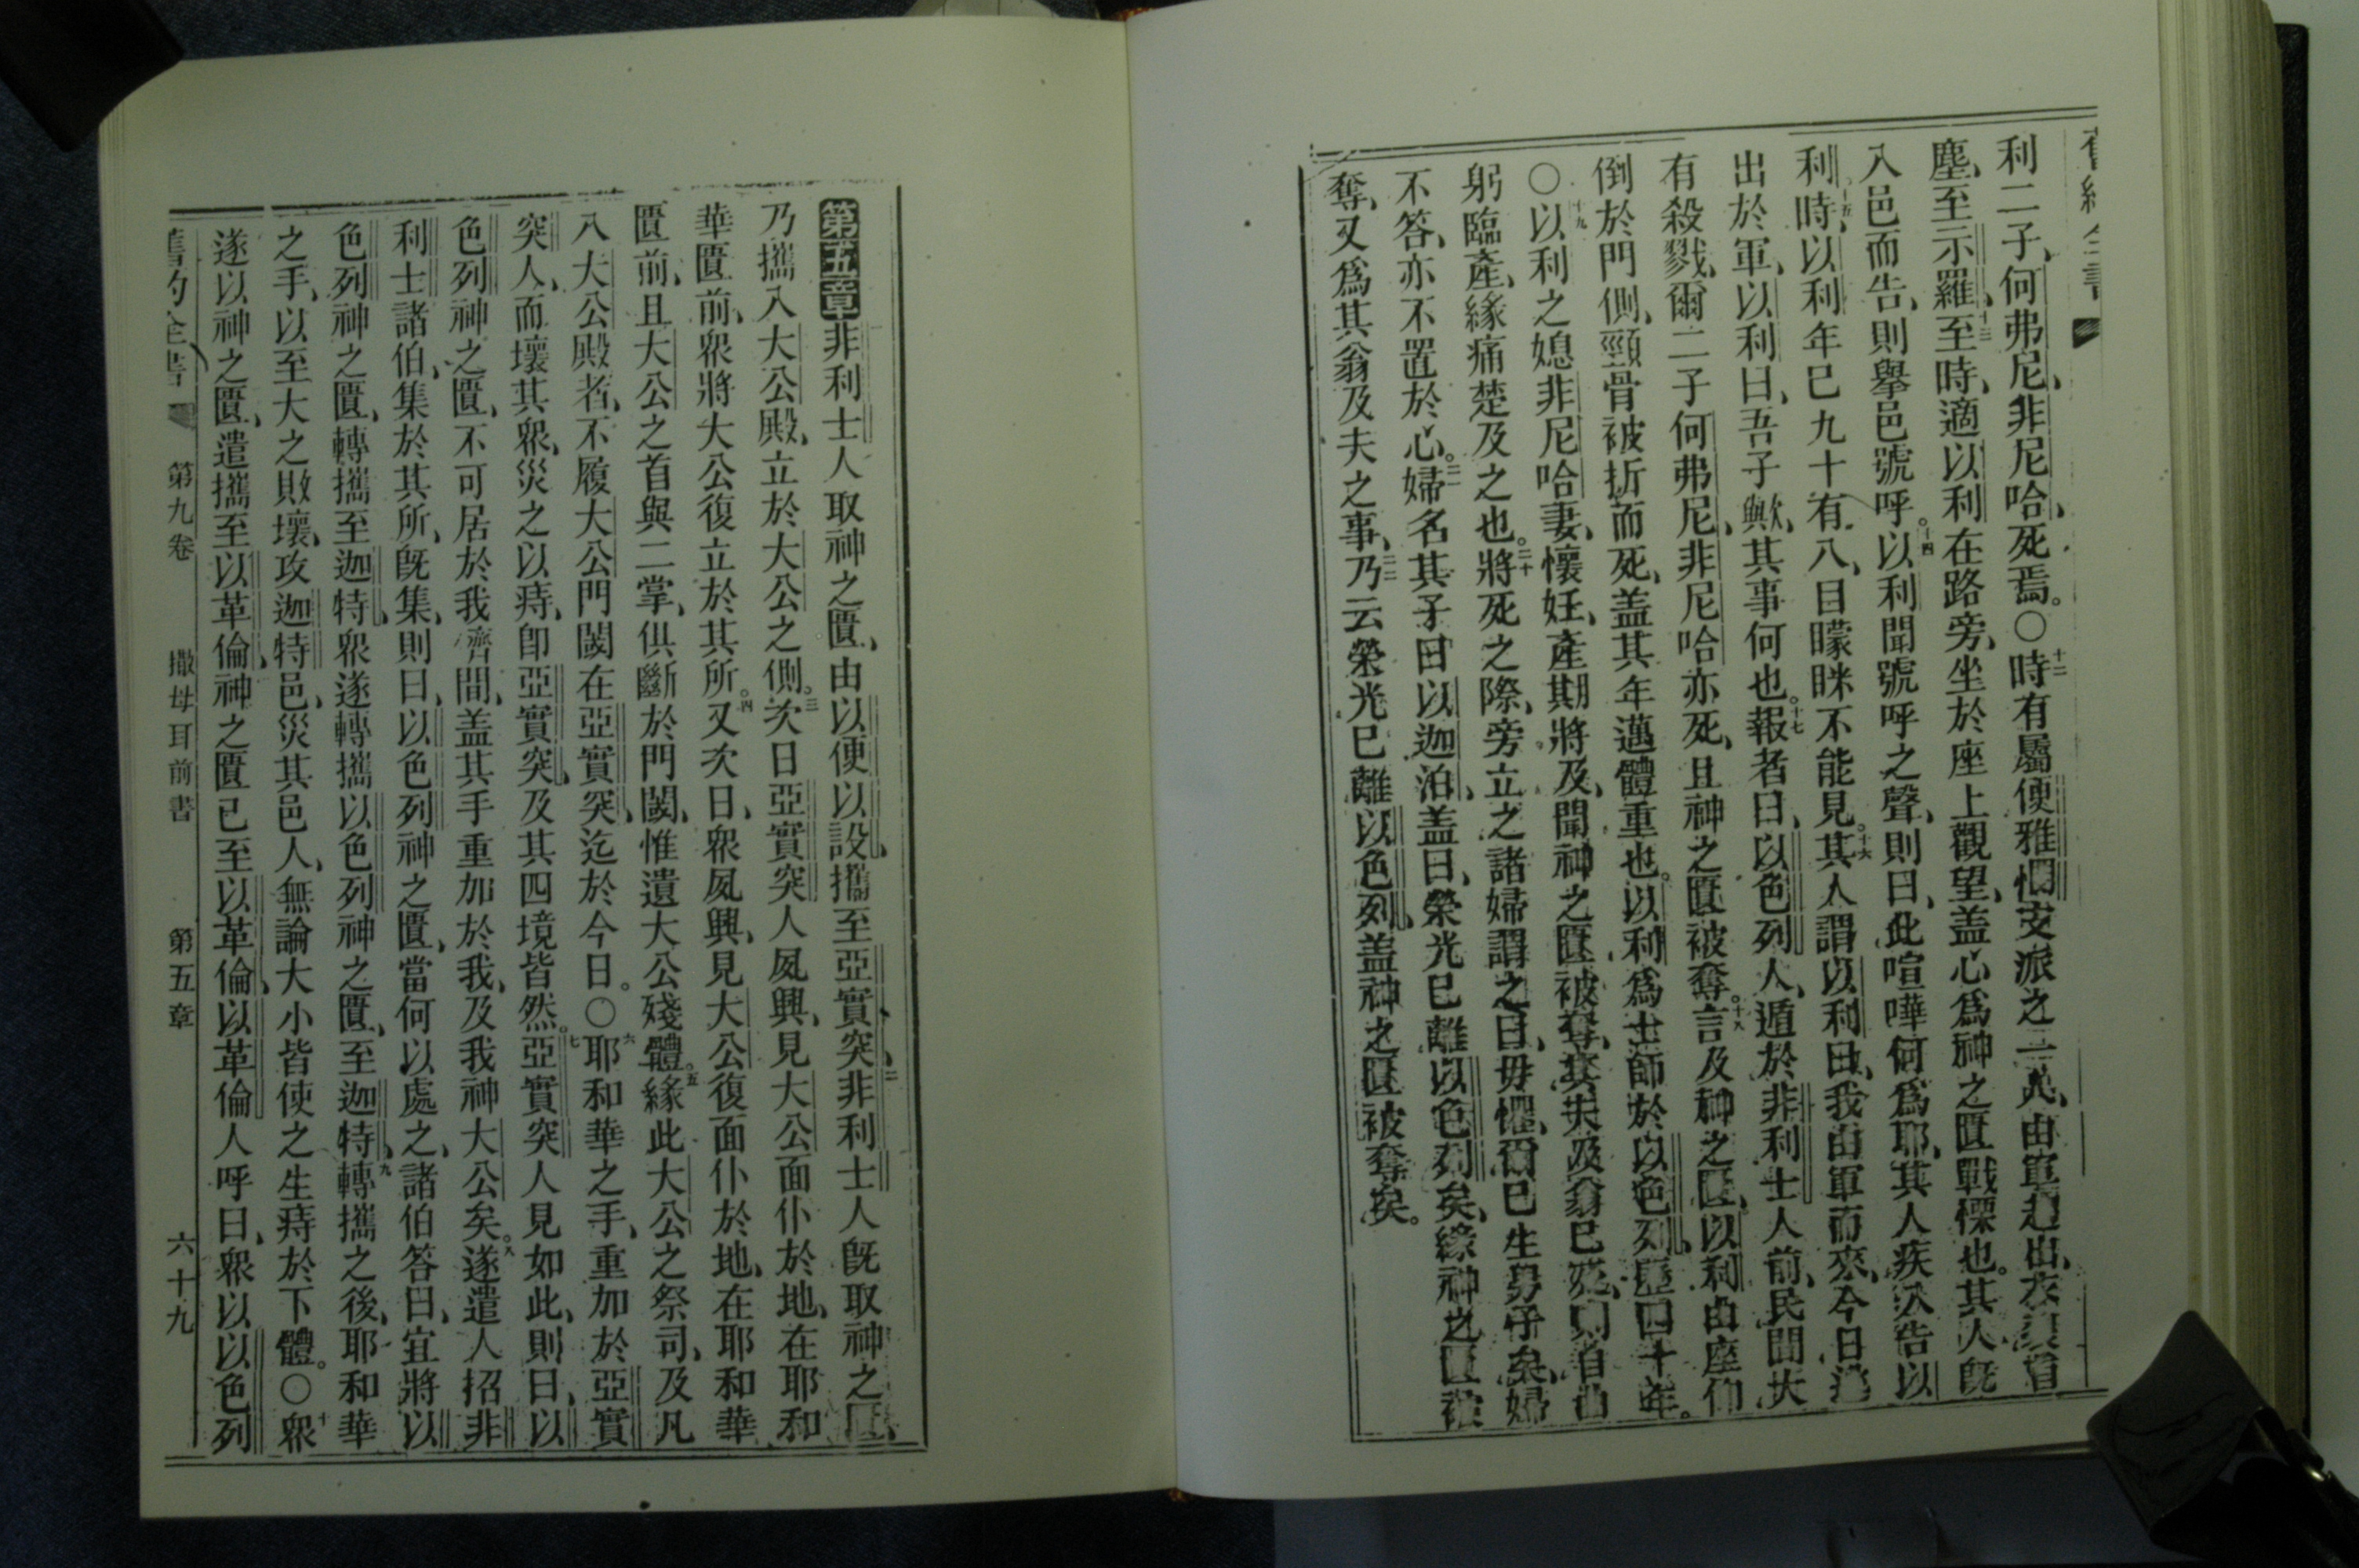 利二子、何弗尼、非尼哈、死焉。○十二時有屬便雅憫支派之一人、由軍趨出、衣裂首
塵、至示羅、十三至時、適以利在路旁、坐於座上觀望、盖心爲神之匱戰慄也。其人旣
入邑而告、則舉邑號呼。十四以利聞號呼之聲、則曰、此喧嘩何爲耶、其人疾入告以
利、十五時以利年已九十有八、目矇眯不能見。十六其人謂以利曰、我由軍而來、今日逃
出於軍、以利曰、吾子歟、其事何也。十七報者曰、以色列人、遁於非利士人前、民間大
有殺戮、爾二子何弗尼、非尼哈亦死、且神之匱被奪。十八言及神之匱、以利由座仰
倒於門側、頸骨被折而死、盖其年邁體重也。以利爲士師於以色列、歷四十年。
○十九以利之媳、非尼哈妻、懷妊、產期將及、聞神之匱被奪、其夫及翁已死、則自曲
躬臨產、緣痛楚及之也。二十將死之際、旁立之諸婦謂之曰、毋懼、爾已生男子矣、婦
不答、亦不置於心。二一婦名其子曰以迦泊、盖曰、榮光已離以色列矣、緣神之匱被
奪、又爲其翁及夫之事、二二乃云榮光已離以色列、盖神之匱被奪矣。
第五章 非利士人取神之匱、由以便以設、攜至亞實突、二非利士人旣取神之匱、
乃攜入大公殿、立於大公之側。三次日亞實突人夙興、見大公面仆於地、在耶和
華匱前、眾將大公復立於其所。四又次日、眾夙興、見大公復面仆於地、在耶和華
匱前、且大公之首與二掌、俱斷於門閾、惟遺大公殘體。五緣此大公之祭司、及凡
入大公殿者、不履大公門閾在亞實突、迄於今日。○六耶和華之手、重加於亞實
突人、而壞其眾、災之以痔、卽亞實突、及其四境皆然。七亞實突人見如此、則曰、以
色列神之匱、不可居於我儕間、盖其手重加於我、及我神大公矣。八遂遣人招非
利士諸伯、集於其所、旣集、則曰、以色列神之匱、當何以處之、諸伯答曰、宜將以
色列神之匱、轉攜至迦特、眾遂轉攜以色列神之匱、至迦特、九轉攜之後、耶和華
之手、以至大之敗壞、攻迦特邑、災其邑人、無論大小皆使之生痔於下體。○十眾
遂以神之匱、遣攜至以革倫、神之匱已至以革倫、以革倫人呼曰、眾以以色列
舊約全書 第九卷 撒母耳前書 第五章 六十九